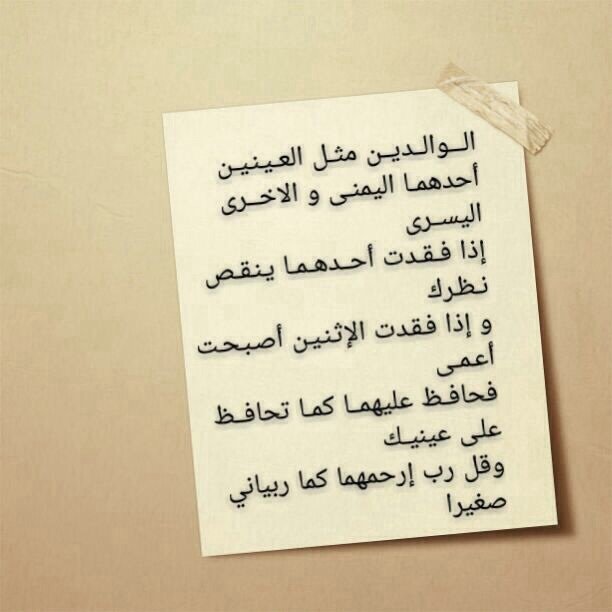 الــوالـديـن مثـل العـينيـن
أحدهمـا اليمنـى و الاخـرى
اليسـرى
إذا فـقـدت أحـدهـمـا يـنقـص
نـظرك
و إذا فقدت الإثنـين أصبحت
أعمـى
فحافـظ عليهمـا كمـا تحافـظ
على عينيـك
وقل رب إرحمهما كما ربياني
صغيرا